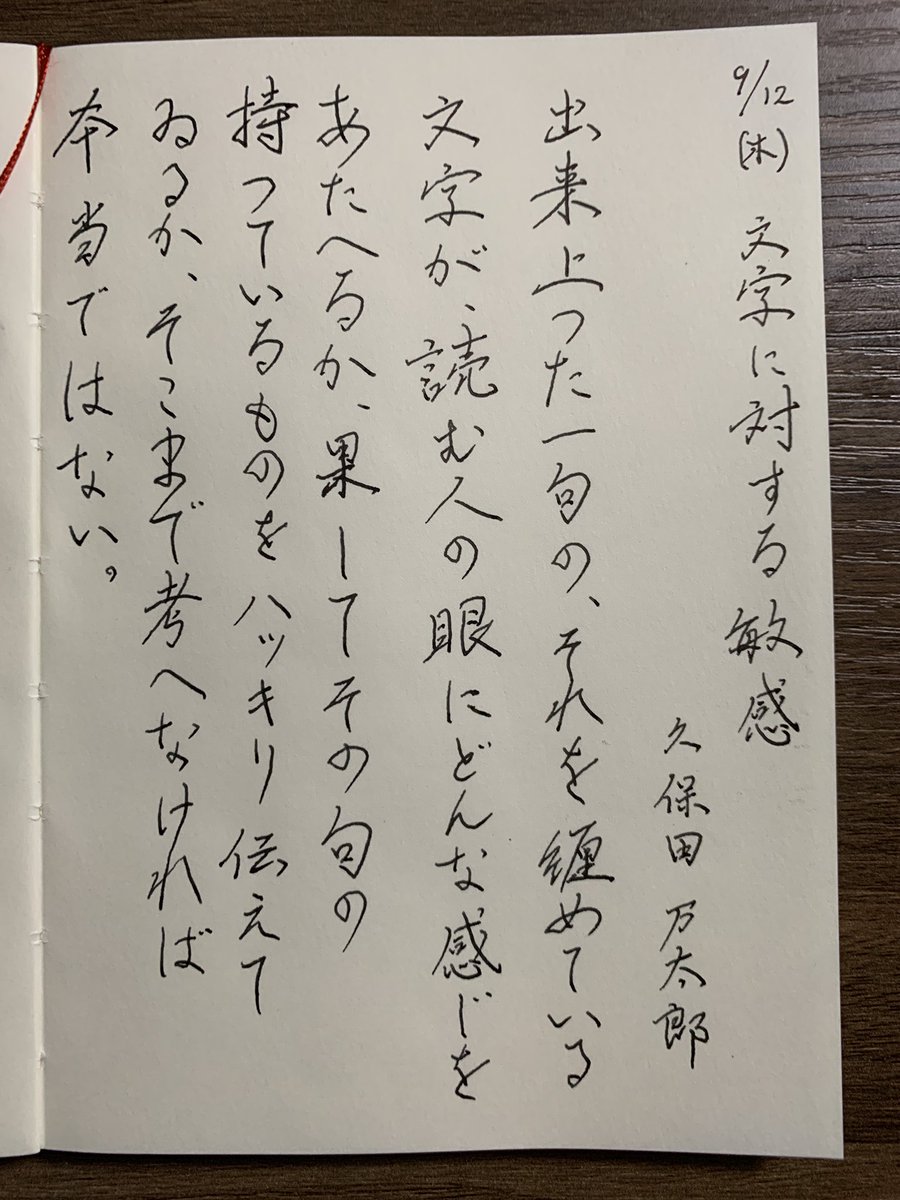 9/12(木) 文字に対する敏感
久保田 万太郎
出来上つた一句の、それを纏めている
文字が、読む人の眼にどんな感じを
あたへるか、果してその句の
持つているものをハッキリ伝えて
ゐるか、そこまで考へなければ
本当ではない。